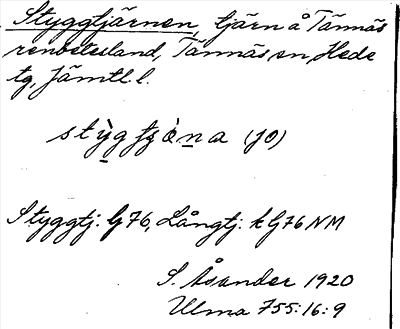 Styggtjärnen, tjärn å Tännäs
renbetesland, Tännäs sn, Hede
tg, Jämtl. l.
(jo)
Styggtj: G 76, Långtj: k G 76 NM
S. Åsander 1920
Ulma 755:16:9